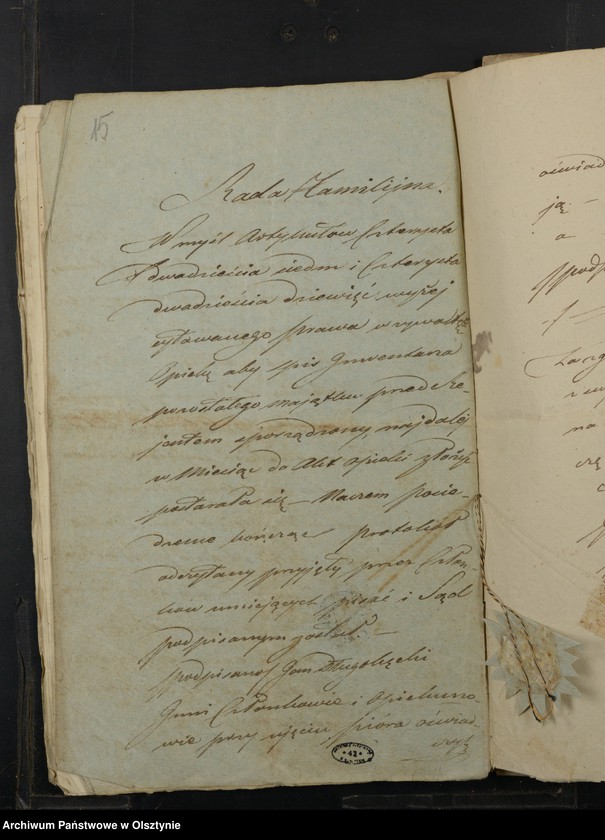 15
Rada Familijna.
W myśl Artykułów Czterysta
dwadzieścia siedm i Czterysta
dwadzieścia dziewięć wyżej
cytowanego prawa w
Opiekę aby spis Inwentarza
pozostałego majątku przed Re-
jentem sporządzony, najdalej
w Miesiąc do Akt opieki złożyć
postarała się — Naczem posie-
dzenie kończąc protokół
odczytany przyjęty przez Człon-
ków umiejących pisać i Sąd
podpisanym został. —
podpisano Jan Długołęcki
Inni Członkowie i Opiekuno
wie przy ujęciu pióra oświad-
czyli
42
oświad
ją. —
a
na
Archiwum Państwowe w Olsztynie